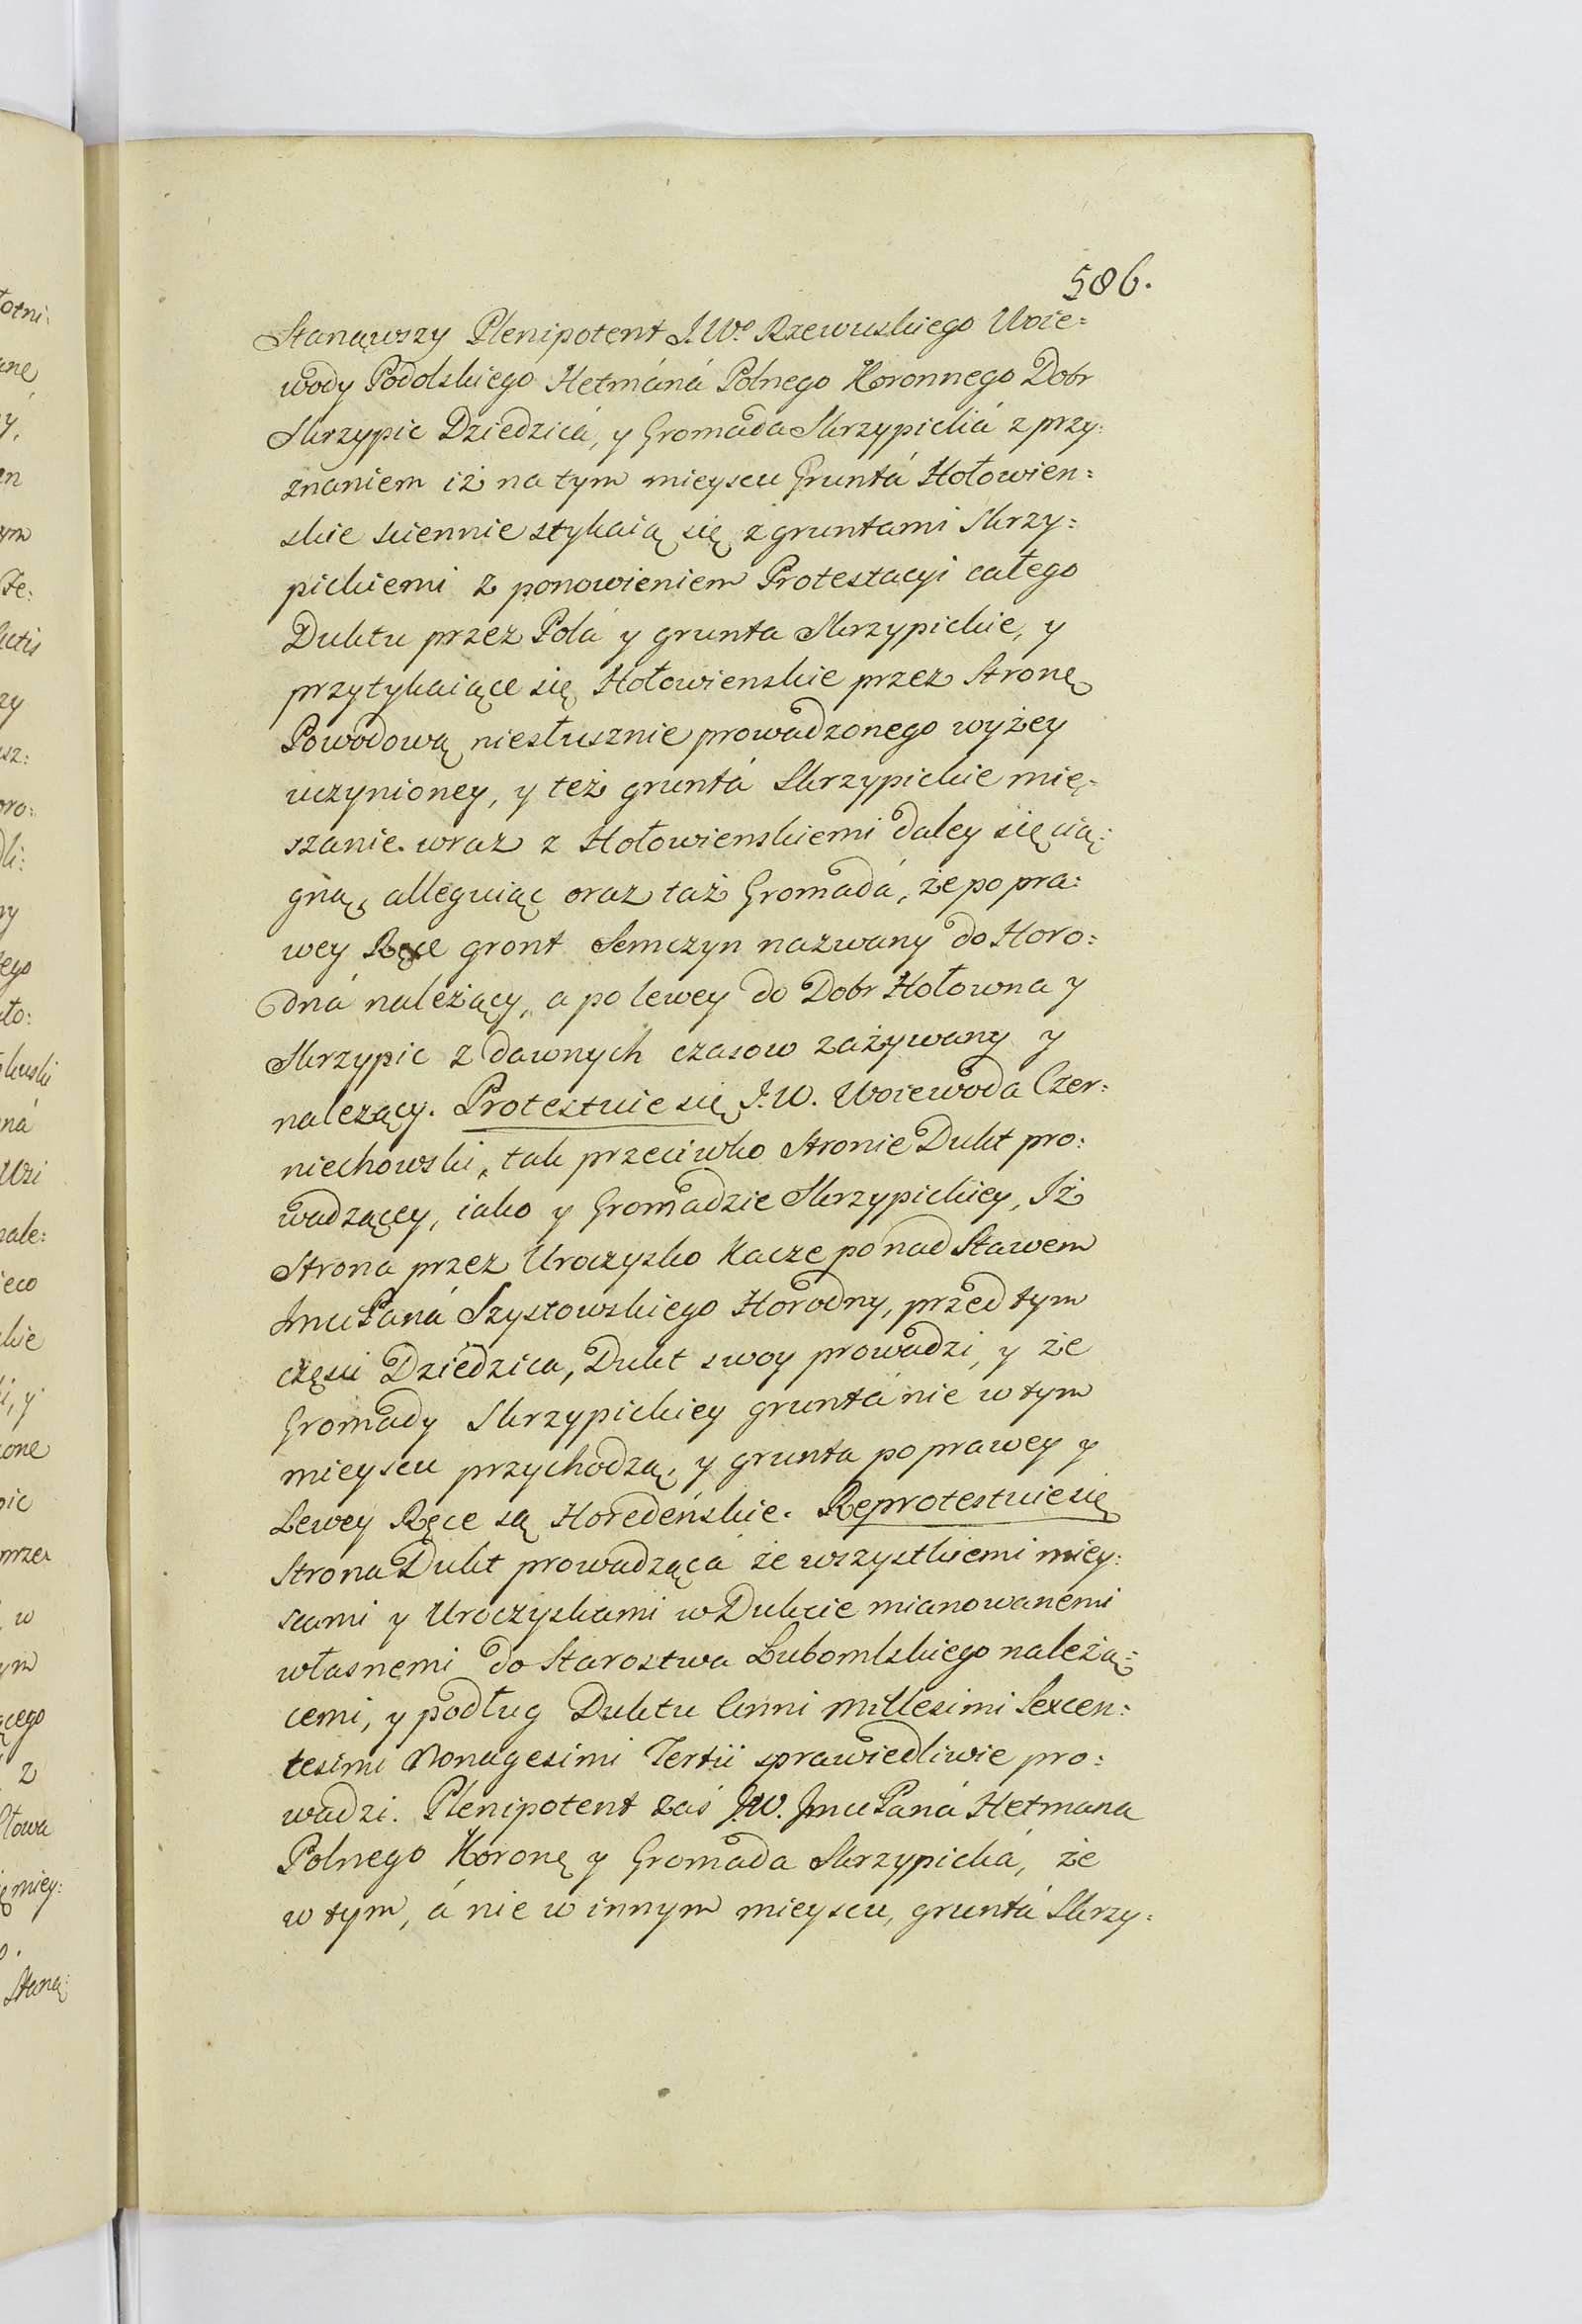 586.
Stanąwszy Plenipotent J.W.º Rzewuskiego Woie=
wody Podolskiego Hetmáná Polnego Koronnego Dobr
Skrzypic Dziedzicá, y Gromada Skrzypickiá z przy=
znaniem iż na tym mieyscu Gruntá Hołowien=
skie sciennie stykaią się z gruntami Skrzy=
pickiemi z ponowieniem Protestacyi całego
Duktu przez Polá y grunta Skrzypickie, y
przytykaiące się Hołowienskie przez Stronę
Powodową niesłusznie prowadzonego wyżey
uczynioney, y też gruntá Skrzypickie mię=
szanie wraz z Hołowienskiemi daley się cią=
gną, alleguiąc oraz taż Gromadá, że po pra=
wey Ręce gront Semczyn nazwany do Horo=
dná należący, a po lewey do Dobr Hołowna y
Skrzypic z dawnych czasow zażywany y
nalezący. Protestuie się J.W. Woiewoda Czer=
niechowski, tak przeciwko Stronie Dukt pro=
wadzącey, iako y Gromadzie Skrzypickiey, Iż
Strona przez Uroczysko Kacze ponad Stawem
Jmci Paná Szystowskiego Horodny, przed tym
częsci Dziedzica, Dukt swoy prowadzi, y że
Gromady Skrzypickiey gruntá nie w tym
mieyscu przychodzą, y grunta po prawey y
Lewey Ręce są Horedeńskie. Reprotestuie się
Strona Dukt prowadząca że wszystkiemi miey=
scami y Uroczyskami w Dukcie mianowanemi
własnemi do Starostwa Lubomlskiego należą=
cemi, y podług Duktu Anni Millesimi Sexcen=
tesimi Nonagesimi Tertii sprawiedliwie pro=
wadzi. Plenipotent zaś J.W. Jmci Paná Hetmana
Polnego Koronę y Gromada Skrzypická, że
w tym, á nie w innym mieyscu, gruntá Skrzy=